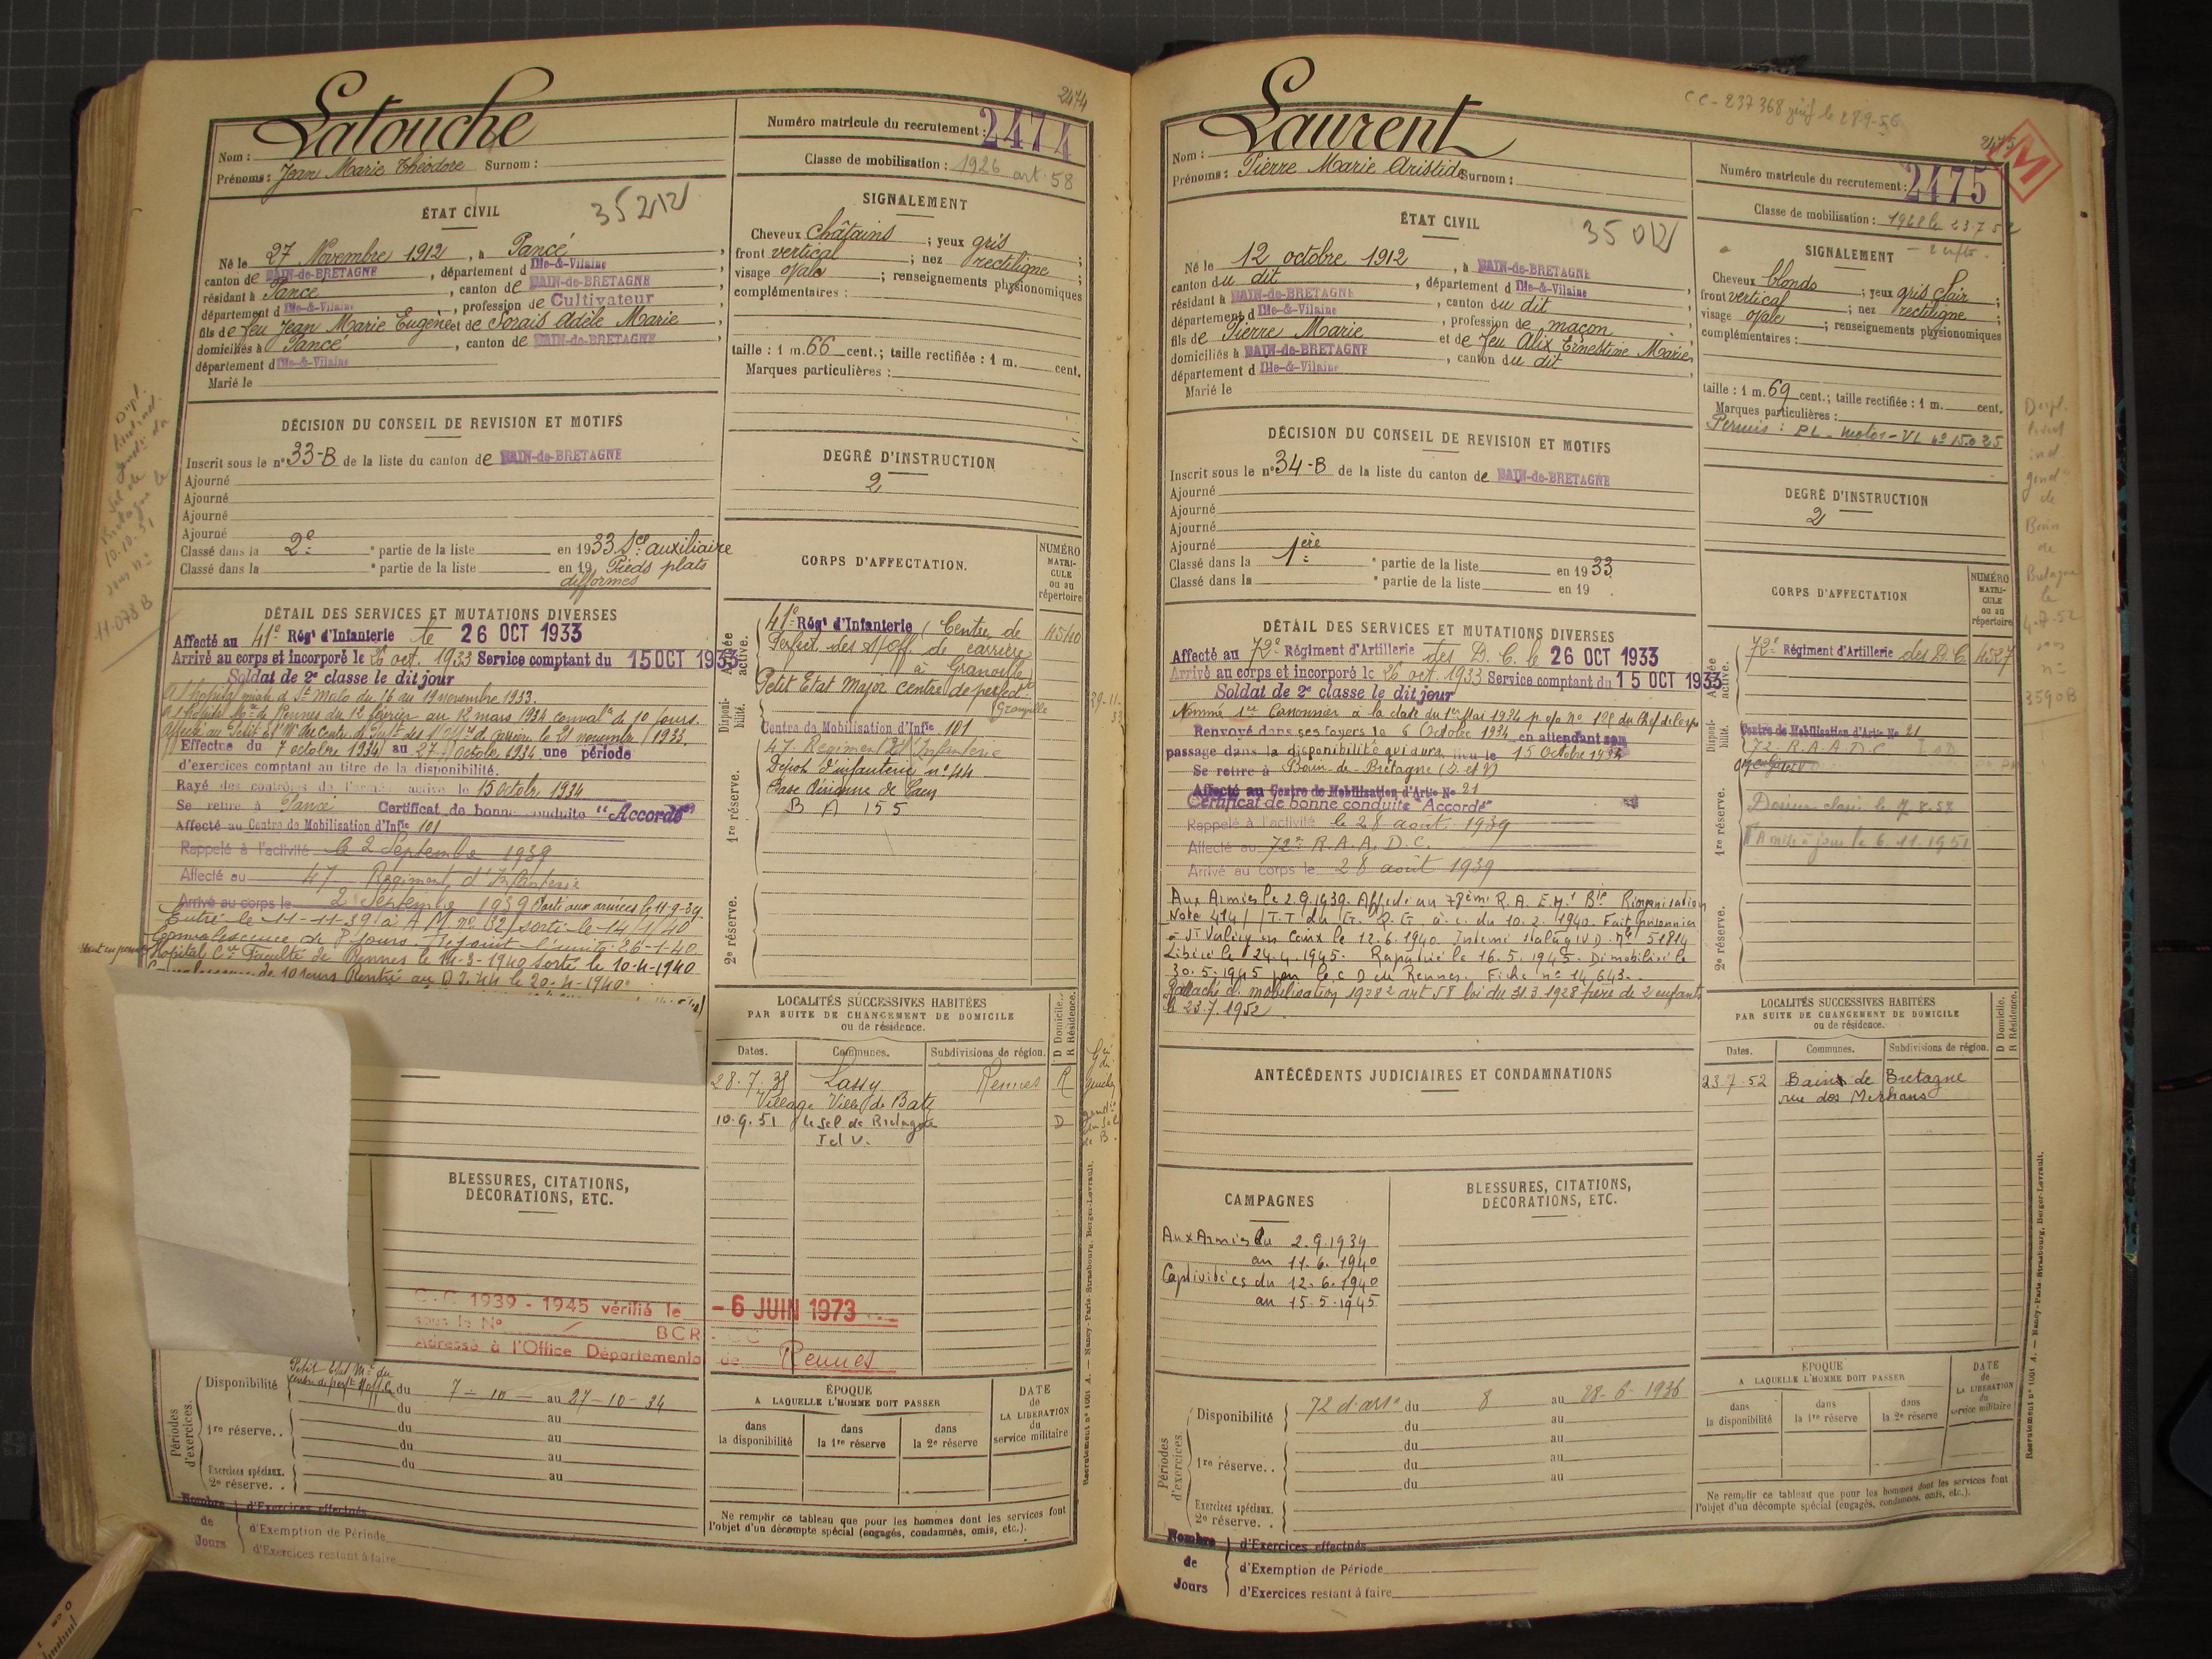 2474
Latouche
Nom :
Prénoms : Jean Marie Théodore Surnom :
Numéro matricule du recrutement : 2474
Classe de mobilisation : 1926 art. 58
ÉTAT CIVIL
35212
Né le 27 Novembre 1912, à Pancé,
canton de BAIN-de-BRETAGNE, département d Ille-&-Vilaine
résidant à Pancé, canton de BAIN-de-BRETAGNE,
département d Ille-&-Vilaine, profession de Cultivateur
fils de feu Jean Marie Eugène et de Sorais Adèle Marie,
domiciliés à Pancé, canton de BAIN-de-BRETAGNE,
département d Ille-&-Vilaine
Marié le
SIGNALEMENT
Cheveux châtains ; yeux gris ;
front vertical ; nez rectiligne ;
visage ovale ; renseignements physionomiques
complémentaires :
taille : 1 m. 66 cent.; taille rectifiée : 1 m. cent.
Marques particulières :
DÉCISION DU CONSEIL DE REVISION ET MOTIFS
Inscrit sous le n° 33-B de la liste du canton de BAIN-de-BRETAGNE
Ajourné
Ajourné
Ajourné
Ajourné
Classé dans la 2e partie de la liste en 1933 Sce auxiliaire
Classé dans la partie de la liste en 19 Pieds plats
difformes
DEGRÉ D'INSTRUCTION
2
DÉTAIL DES SERVICES ET MUTATIONS DIVERSES
Affecté au 41e Régt d'Infanterie le 26 OCT 1933
Arrivé au corps et incorporé le 26 oct. 1933 Service comptant du 15 OCT 1933
Soldat de 2e classe le dit jour
A l'hôpital mixte d St Malo du 16 au 19 novembre 1933.
A l'hôpital Mre de Rennes du 12 février au 12 mars 1934 convalce de 10 jours.
Effectue du 7 octobre 1934 au 27 octobre 1934 une période
d'exercices comptant au titre de la disponibilité.
Rayé des contrôles de l'armée active le 15 octobre 1934
Se retire à Pancé Certificat de bonne conduite "Accordé"
Affecté au Centre de Mobilisation d'Infie 101
Rappelé à l'activité le 2 Septembre 1939
Affecté au 47 Régiment d'Infanterie
Arrivé au corps le 2 Septembre 1939 Parti aux armées le 11-9-39
Entré le 11-11-39 à A M no 32 sorti le 14/1/40
Convalescence de 8 jours. Rejoint l'unité 26-1-40
Hôpital Cre Faculté de Rennes le 14-3-1940 Sorti le 10-4-1940
Convalescence de 10 jours Rentré au D I 44 le 20-4-1940
CORPS D'AFFECTATION.
NUMÉRO MATRICULE ou au répertoire
Armée active.
41e Régt d'Infanterie (Centre de
Perfect. des S/off. de carrière
à Granville)
4540
Petit Etat Major centre de perfect.
Granville
Disponibilité.
Centre de Mobilisation d'Infie 101
47 Régiment d'Infanterie
Dépôt d'infanterie n° 44
Base Aérienne de Caen
B A 155
1re réserve.
2e réserve.
LOCALITÉS SUCCESSIVES HABITÉES
PAR SUITE DE CHANGEMENT DE DOMICILE
ou de résidence.
D Domicile. R Résidence.
Dates. Communes. Subdivisions de région.
28.7.38 Lassy Rennes R
Village Ville de Bate
10.9.51 Le Sel de Bretagne D
I et V.
BLESSURES, CITATIONS,
DÉCORATIONS, ETC.
C.C 1939 - 1945 vérifié le - 6 JUIN 1973
sous le N° BCR
Adressé à l'Office Départemental de Rennes
Périodes d'exercices.
Disponibilité du 7 - 10 au 27-10-34
du au
1re réserve.. du au
du au
du au
Exercices spéciaux.
2e réserve. .
Nombre de Jours
d'Exercices effectués
d'Exemption de Période
d'Exercices restant à faire
ÉPOQUE
A LAQUELLE L'HOMME DOIT PASSER
dans la disponibilité
dans la 1re réserve
dans la 2e réserve
DATE de LA LIBÉRATION du service militaire
Ne remplir ce tableau que pour les hommes dont les services font
l'objet d'un décompte spécial (engagés, condamnés, omis, etc.).
Recrutement n° 1001 A. — Nancy-Paris-Strasbourg, Berger-Levrault.
11.078 B
CC-237368
2475
M
Laurent
Nom :
Prénoms : Pierre Marie Aristide Surnom :
Numéro matricule du recrutement : 2475
Classe de mobilisation : 1928 le 23.7.52
ÉTAT CIVIL
35012
Né le 12 octobre 1912, à BAIN-de-BRETAGNE
canton du dit, département d Ille-&-Vilaine
résidant à BAIN-de-BRETAGNE, canton du dit
département d Ille-&-Vilaine, profession de maçon
fils de Pierre Marie et de feu Alix Ernestine Marie,
domiciliés à BAIN-de-BRETAGNE, canton du dit
département d Ille-&-Vilaine
Marié le
SIGNALEMENT
Cheveux blonds ; yeux gris clair ;
front vertical ; nez rectiligne ;
visage ovale ; renseignements physionomiques
complémentaires :
taille : 1 m. 69 cent.; taille rectifiée : 1 m. cent.
Marques particulières :
Permis : PL - motos - VL n° 15035
DÉCISION DU CONSEIL DE REVISION ET MOTIFS
Inscrit sous le n° 34-B de la liste du canton de BAIN-de-BRETAGNE
Ajourné
Ajourné
Ajourné
Ajourné
Classé dans la 1ère partie de la liste en 1933
Classé dans la partie de la liste en 19
DEGRÉ D'INSTRUCTION
2
DÉTAIL DES SERVICES ET MUTATIONS DIVERSES
Affecté au 72e Régiment d'Artillerie des D. C. le 26 OCT 1933
Arrivé au corps et incorporé le 26 oct. 1933 Service comptant du 15 OCT 1933
Soldat de 2e classe le dit jour
Nommé 1er Canonnier à la date du 1er Mai 1934
Renvoyé dans ses foyers le 6 Octobre 1934 en attendant son
passage dans la disponibilité qui aura lieu le 15 Octobre 1934
Se retire à Bain-de-Bretagne (I. et V)
Affecté au Centre de Mobilisation d'Artie No 21
Certificat de bonne conduite "Accordé"
Rappelé à l'activité le 28 août 1939
Affecté au 72e R.A.A.D.C.
Arrivé au corps le 28 août 1939
Aux Armées le 2.9.1939. Affecté au 78ème R.A. E.M. 1 Bie Réorganisation
Note 414/ /T.T du G.Q.G à c. du 10.2.1940. Fait prisonnier
à St Valéry en Caux le 12.6.1940 Interné Stalag IV D. Mle 51814
Libéré le 24.4.1945. Rapatrié le 16.5.1945. Démobilisé le
30.5.1945 par le C D de Rennes. Fiche n° 14643.
Rattaché cl. mobilisation 1928 art 58 loi du 31.3.1928 père de 2 enfants
le 23.7.1952
CORPS D'AFFECTATION
NUMÉRO MATRICULE ou au répertoire
Armée active.
72e Régiment d'Artillerie des D.C 4527
Disponibilité.
Centre de Mobilisation d'Artie No 21
72 R.A.A D.C
1re réserve.
Dossier classé le 7.8.53
mise à jour le 6.11.1951
2e réserve.
ANTÉCÉDENTS JUDICIAIRES ET CONDAMNATIONS
LOCALITÉS SUCCESSIVES HABITÉES
PAR SUITE DE CHANGEMENT DE DOMICILE
ou de résidence.
D Domicile. R Résidence.
Dates. Communes. Subdivisions de région.
23.7.52 Bain de Bretagne
rue des Merhans
CAMPAGNES
Aux Armées du 2.9.1939
au 11.6.1940
Captivité du 12.6.1940
au 15.5.1945
BLESSURES, CITATIONS,
DÉCORATIONS, ETC.
Périodes d'exercices.
Disponibilité 72 d'artie du 8 au 28-6-1936
du au
1re réserve.. du au
du au
du au
Exercices spéciaux.
2e réserve. .
Nombre de Jours
d'Exercices effectués
d'Exemption de Période
d'Exercices restant à faire
ÉPOQUE
A LAQUELLE L'HOMME DOIT PASSER
dans la disponibilité
dans la 1re réserve
dans la 2e réserve
DATE de LA LIBÉRATION du service militaire
Ne remplir ce tableau que pour les hommes dont les services font
l'objet d'un décompte spécial (engagés, condamnés, omis, etc.).
Recrutement n° 1001 A. — Nancy-Paris-Strasbourg, Berger-Levrault.
de
Bain
de
Bretagne
le
4-7-52
sous
n°
3590B